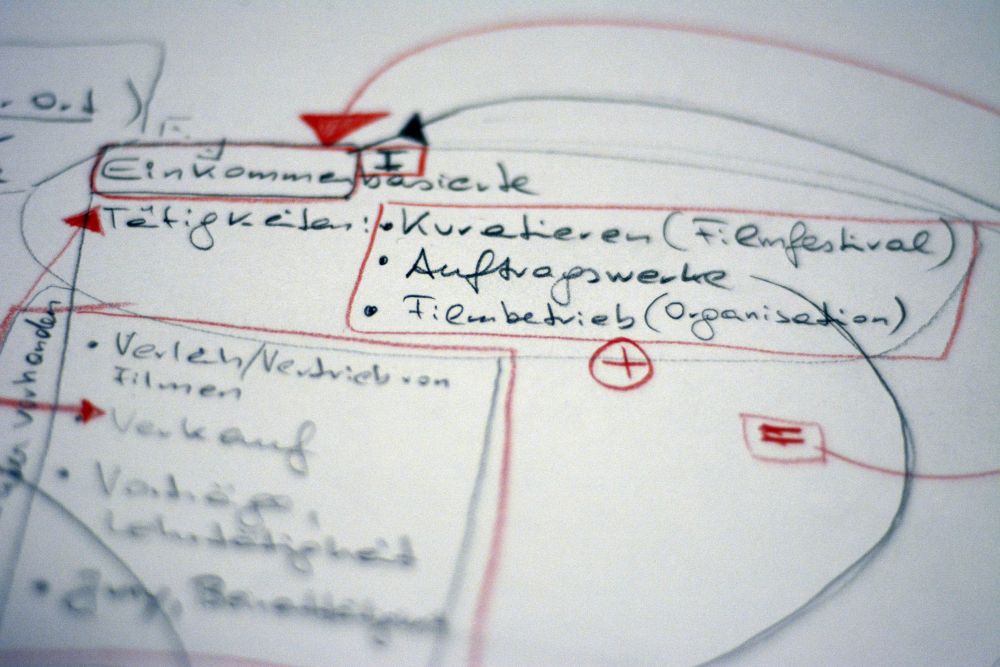 . 0.1 )
I
Einkommenbasierte
Tätigkeiten:
• Kuratieren (Filmfestival)
• Auftragswerke
• Filmbetrieb (Organisation)
+
=
vorhanden
• Verleih/Vertrieb von
Filmen
Verkauf
• Vorträge,
Lehrtätigkeit
• Jury,